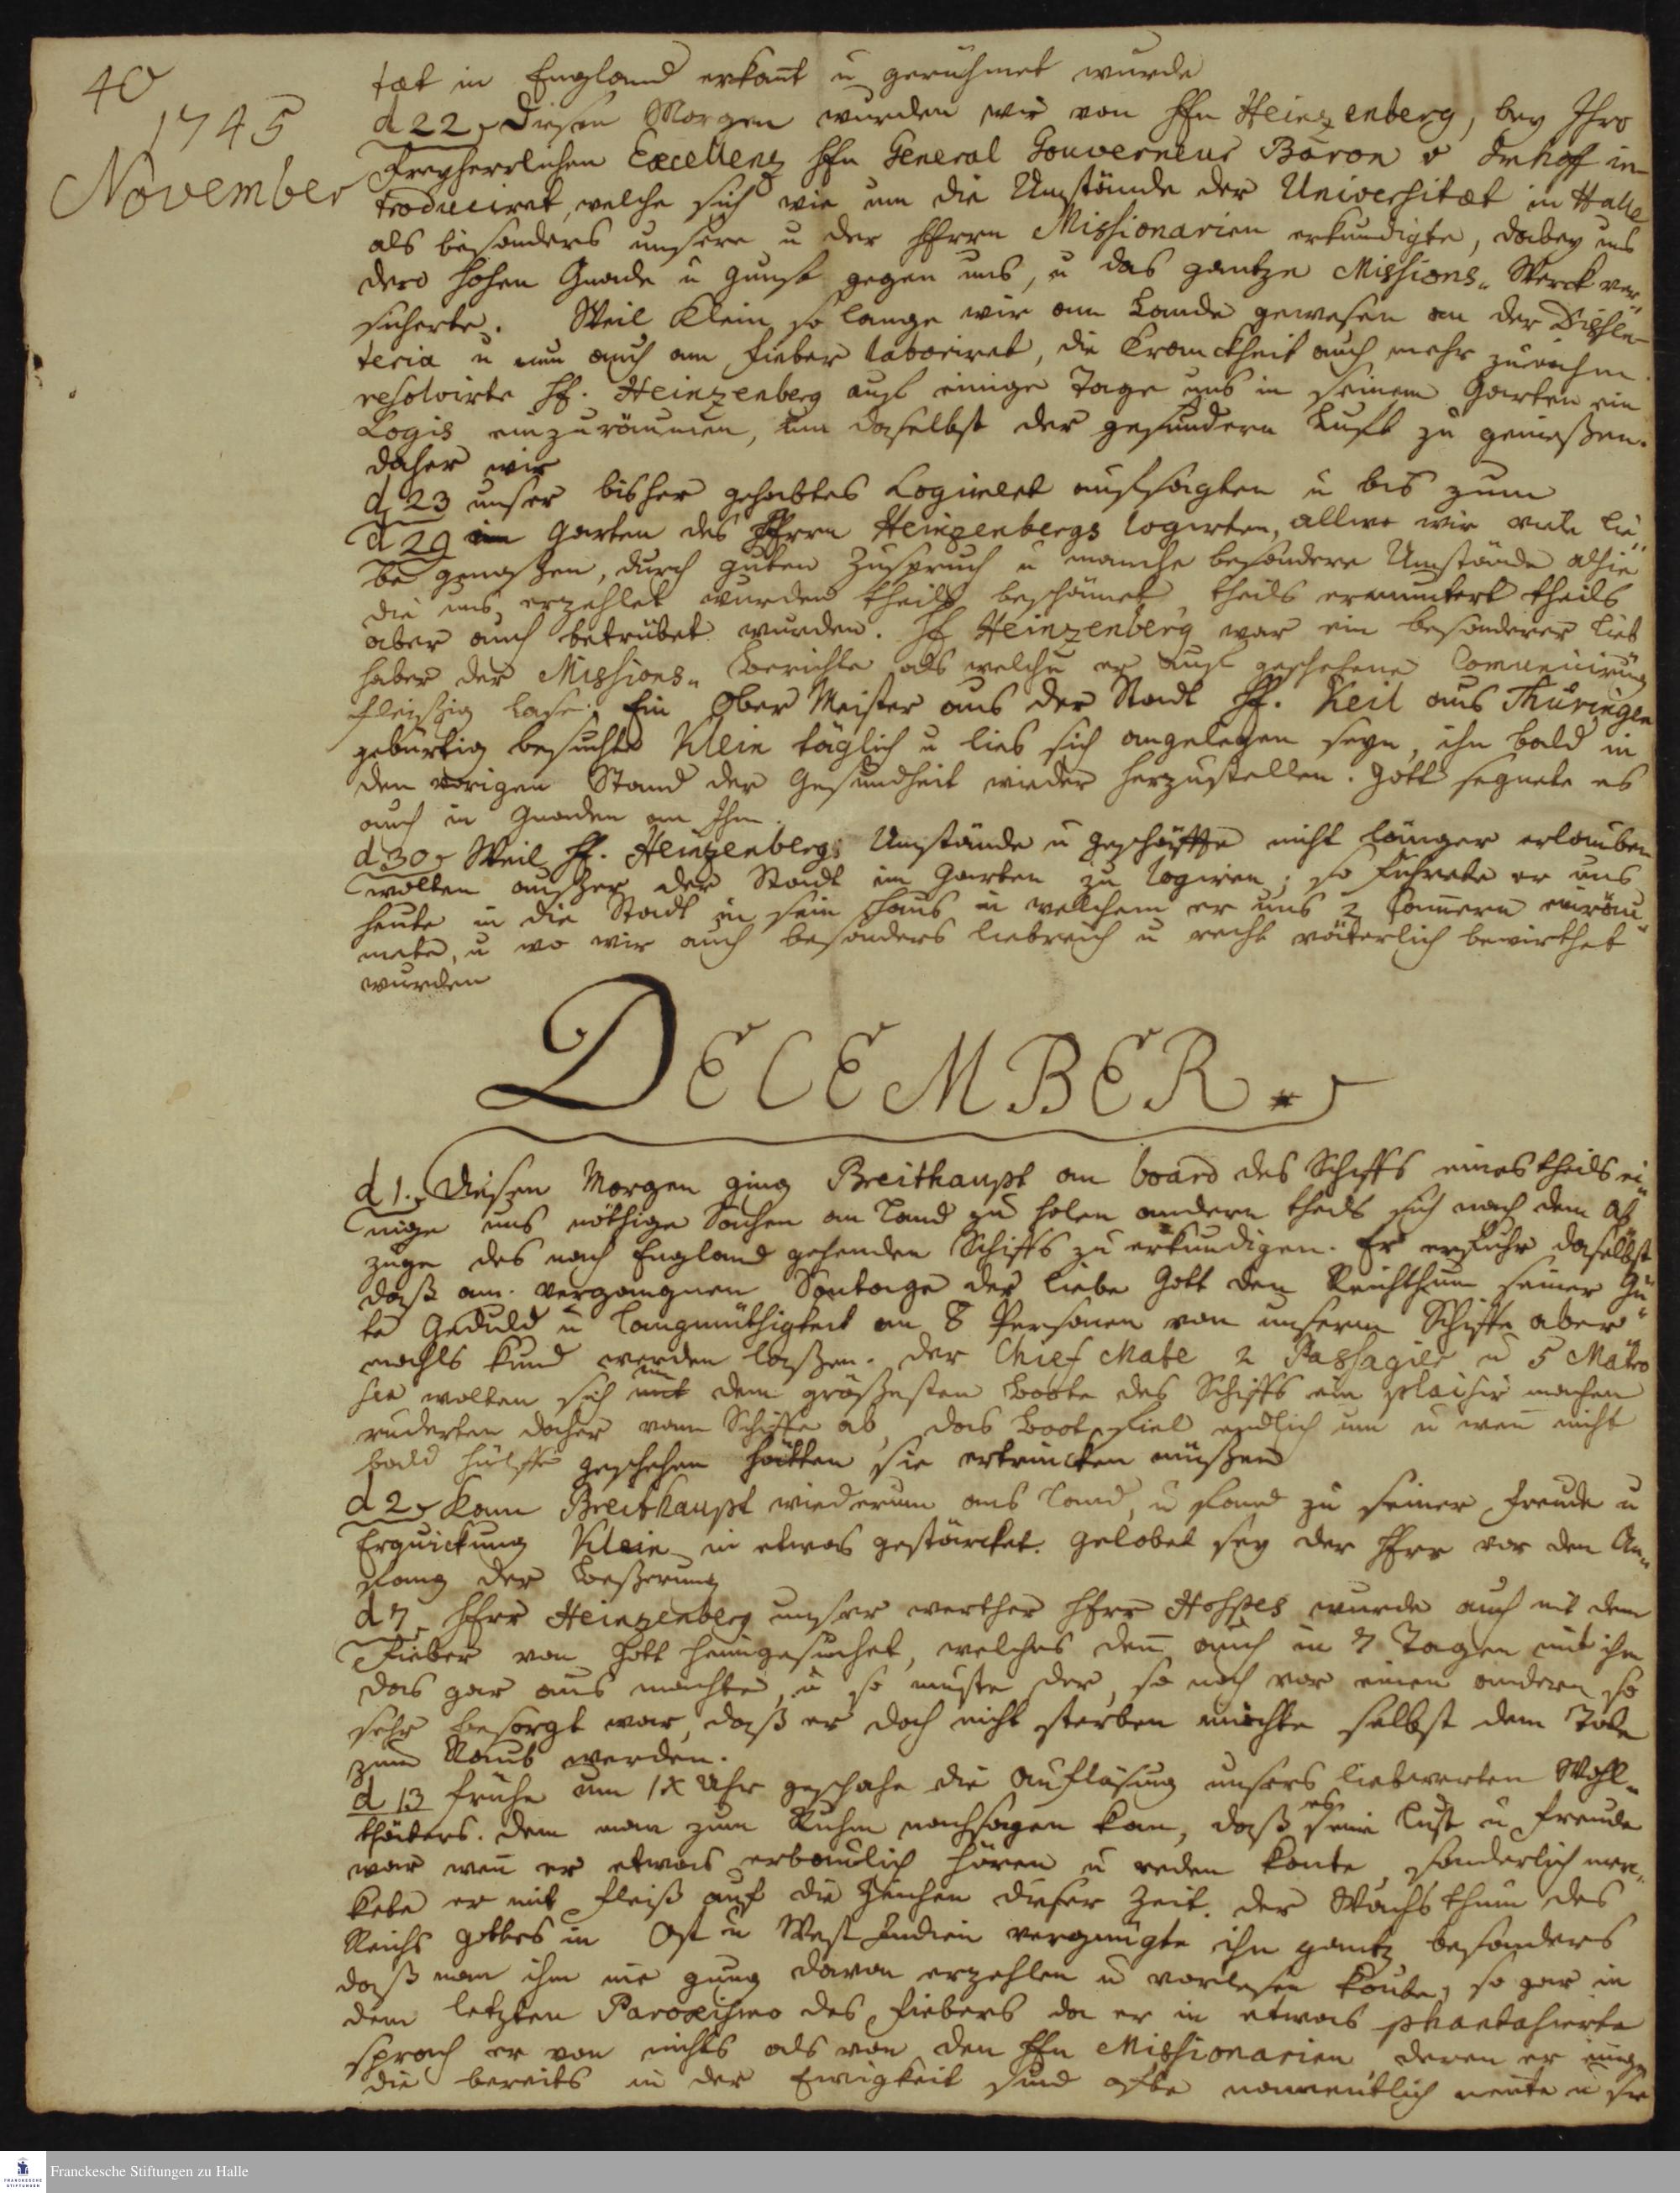 40
1745
November
tæt in England erkant u gerühmet wurde
d 22, Diesen Morgen wurden wir von Hℓn Heinzenberg, bey Ihro
Freyherrlichen Excellenz Hℓn General Gouverneur Baron v Imhoff in-
troduciret, welche sich wie um die Umstände der Universitæt in Halle
als besonders unsere u der Hℓrrn Missionarien erkundigte, dabey uns
dero hohen Gnade u Gunst gegen uns, u das gantze Missions„ Werck ver„
sicherte. Weil Klein so lange wir am Lande gewesen an der Dissen-
teria u nun auch am Fieber laboriret, die Kranckheit auch mehr zunahm
resolvirte H. Heinzenberg auf einige Tage uns in seinem Garten ein
Logis einzuräumen, um daselbst der gesundern Luft zu genießen.
daher wir
d 23 unser bisher gehabtes Logiment aufsagten u bis zum
d 29 im Garten des Hℓrrn Heinzenbergs logirten, allwo wir viele Lie„
be genoßen, durch guten Zuspruch u manche besondere Umstände alhie
die uns erzehlet wurden theils beschämet theils ermuntert theils
aber auch betrübet wurden. H Heinzenberg war ein besonderer Lieb
haber der Missions„ Berichte als welche er auf geschehene Communicirung
fleißig lase. Ein Ober Meister aus der Stadt H. Keil aus Thüringen
gebürtig besuchte Klein täglich u lies sich angelegen seyn, ihn bald in
den vorigen Stand der Gesundheit wieder herzustellen. Gott segnete es
auch in Gnaden an Ihm.
d 30, Weil H. Heinzenbergs Umstände u Geschäffte nicht länger erlauben
wolten ausser der Stadt im Garten zu logiren; so führete er uns
heute in die Stadt in sein Haus in welchem er uns 2 Cammern einräu„
mete, u wo wir auch besonders liebreich u recht väterlich bewirthet
wurden
DECEMBER.
d 1. Diesen Morgen ging Breithaupt an board des Schiffs eines theils ei„
nige uns nöthige Sachen an Land zu holen andern theils sich nach dem Ab
zuge des nach England gehenden Schiffs zu erkundigen. Er erfuhr daselbst
daß am vergangnen Sontage der liebe Gott den Reichthum seiner Gü
te Geduld u Langmüthigkeit an 8 Personen von unserm Schiffe aber„
mahls kund werden laßen. Der Chief Mate 2 Passagier u 5 Matro
sen wolten sich mit dem größesten Boote des Schiffs ein plaisir machen
ruderten daher vom Schiffe ab, das Boot fiel endlich um u wen nicht
bald Hülffe geschehen hätten sie ertrincken müßen
d 2, Kam Breithaupt wiederum ans Land, u fand zu seiner Freude u
Erquickung Klein in etwas gestärcket. Gelobet sey der Herr vor den An„
fang der Beßerung
d 7, Herr Heinzenberg unser werther Herr Hospes wurde auch mit dem
Fieber von Gott heimgesuchet, welches den auch in 7 Tagen mit ihm
das gar aus machte, u so muste der, so noch vor einen andern so
sehr besorgt war, daß er doch nicht sterben möchte selbst dem Tode
zum Raub werden.
d 13 frühe um 1X Uhr geschahe die Auflösung unsers liebwerten Wohl„
thäters. dem man zum Ruhm nachsagen kan, daß es seine Lust u Freude
war wen er etwas erbaulich hören u reden konte, sonderlich mer„
kete er mit Fleiß auf die Zeichen dieser Zeit. der Wachsthum des
Reichs Gottes in Ost u West Indien vergnügte ihn gantz besonders
daß man ihm nie gnug davon erzehlen u vorlesen konte, so gar in
dem letzten Paroxismo des Fiebers da er in etwas phantasierte
sprach er von nichts als von den Hℓn Missionarien deren er einige
die bereits in der Ewigkeit sind ofte namentlich nente u sie
Franckesche Stiftungen zu Halle